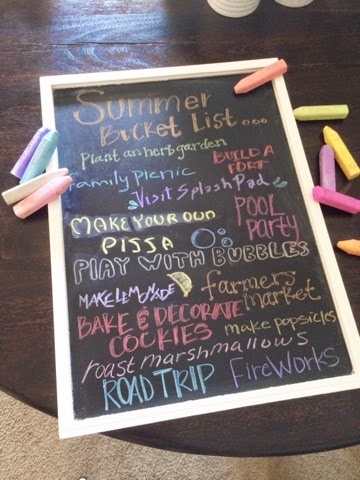 Summer
Bucket List...
Plant an herb garden
BUILD A
FORT
Family picnic
Visit Splash Pad
MAKE YOUR OWN
PISSA
POOL
Party
PLAY WITH BUBBLES
MAKE LEMONADE
farmers
market
BAKE & DECORATE
COOKIES
make popsicles
roast marshmallows
ROAD TRIP
FireWorks